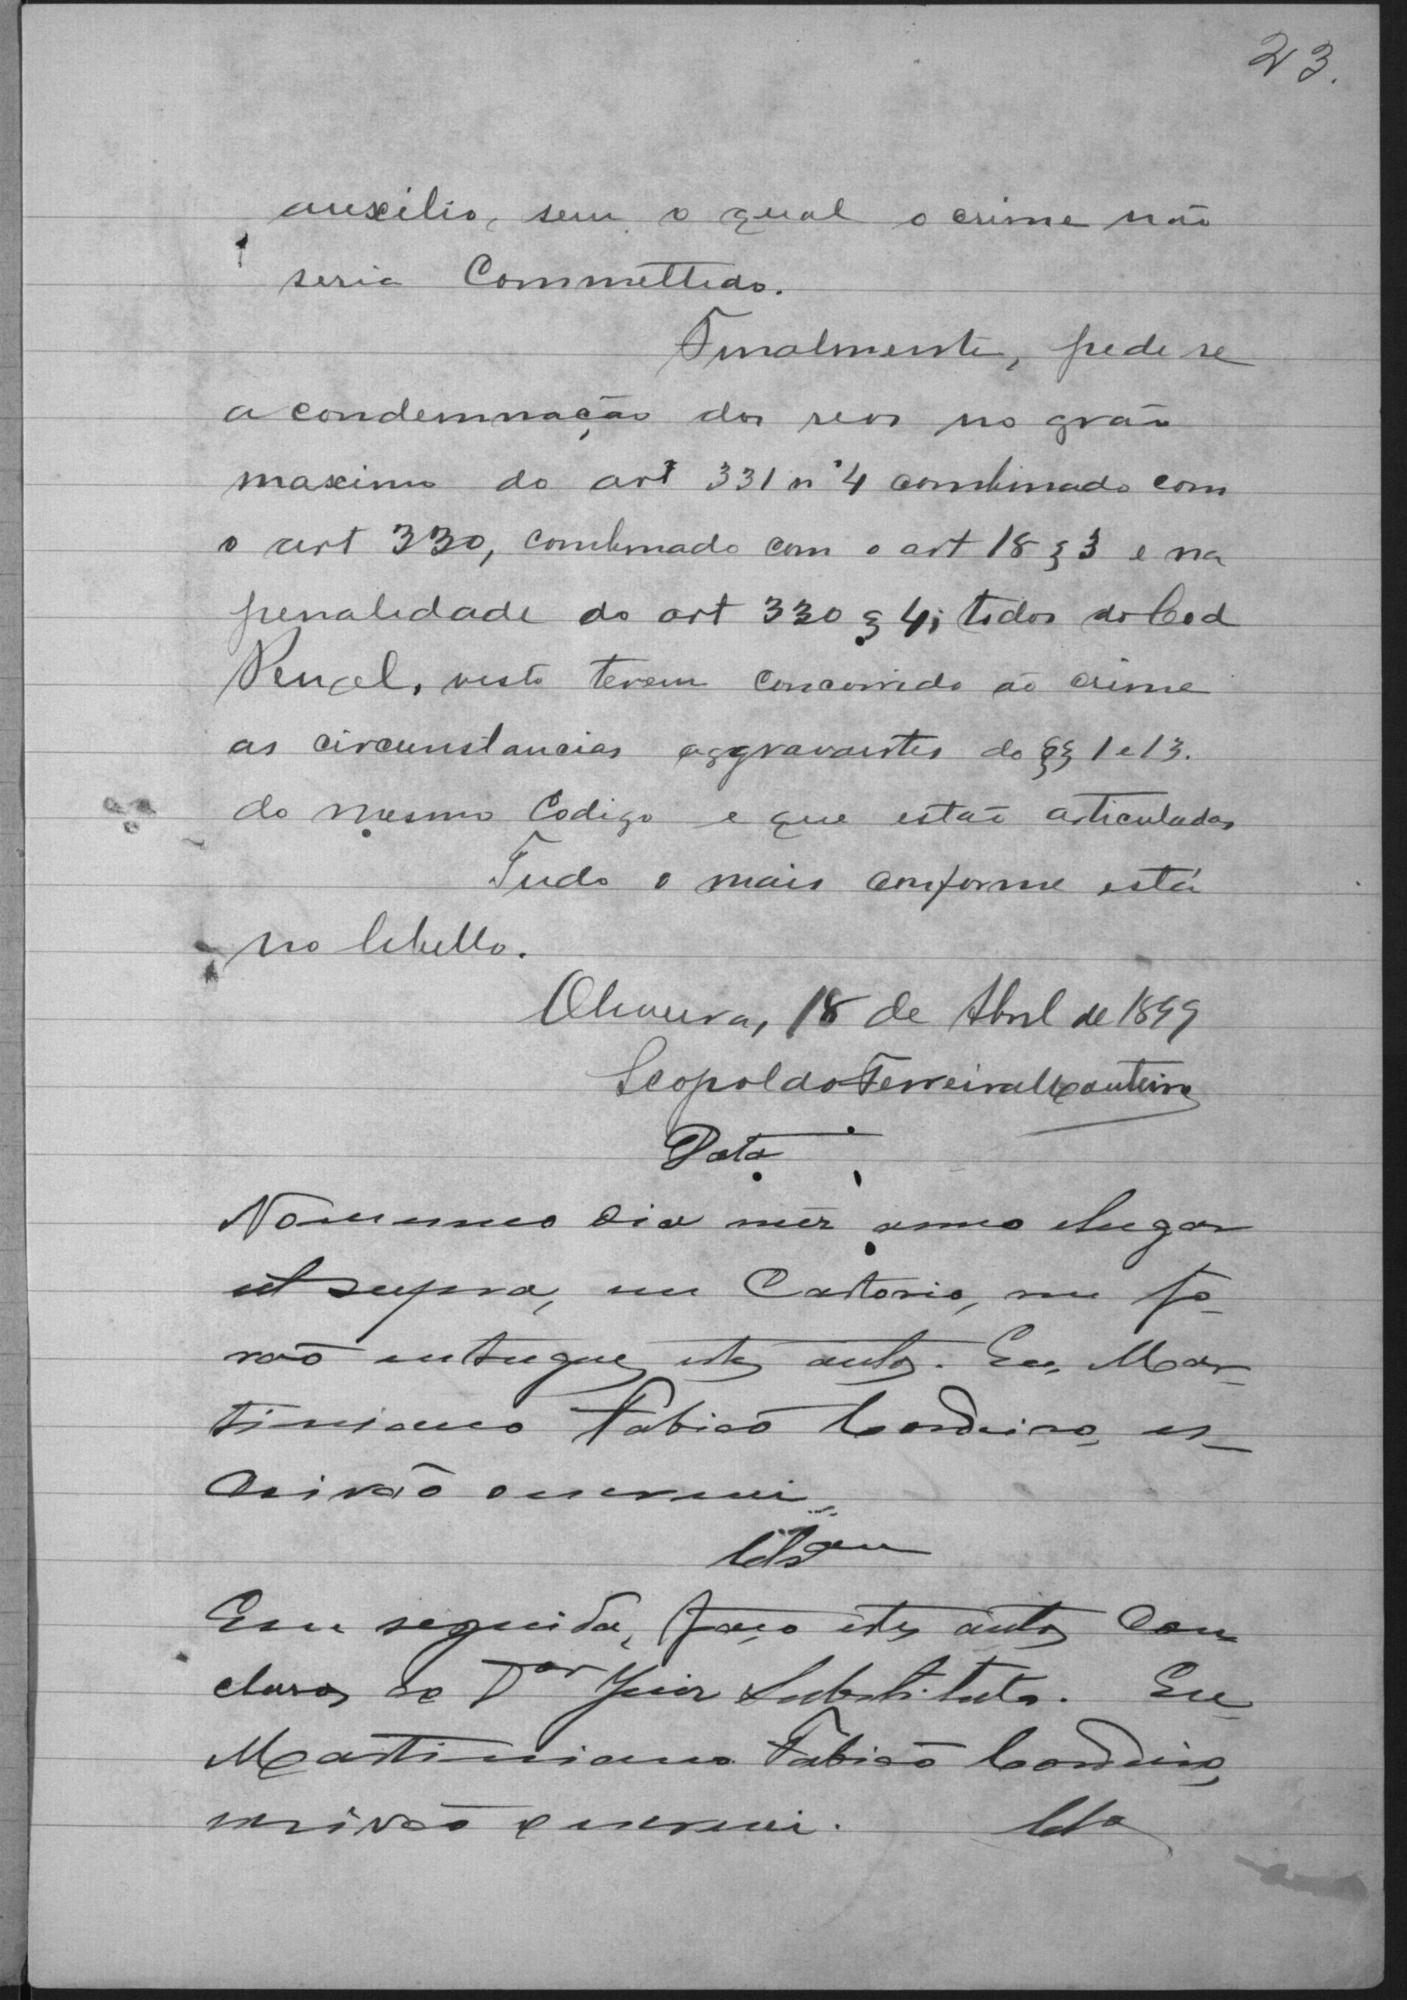 23.
auxilio, sem o qual o crime não
seria Commettido.
Finalmente, pede se
a condemnação dos reos no grão
maximo do art 331 nº 4 combinado com
o art 330, combinado com o art 18 § 3 e na
penalidade do art 330 § 4; todos do Cod
Penal, visto terem concorrido ao crime
as circunstancias aggravantes do §§ 1 e 13.
do mesmo Codigo e que estão articuladas
Tudo o mais conforme está
no libello.
Oliveira, 18 de Abril de 1899
Leopoldo Ferreira Monteiro
Data
No mesmo dia mez anno e lugar
ut supra, em Cartorio, me fo-
rão entregues estes autos. Eu, Mar-
tiniano Fabião Cordeiro, es-
crivão o escrevi.
Clsam
Em seguida, faço estes autos Con
clusos ao Dor Juiz Substituto. Eu
Martiniano Fabião Cordeiro,
escrivão o escrevi. Clo